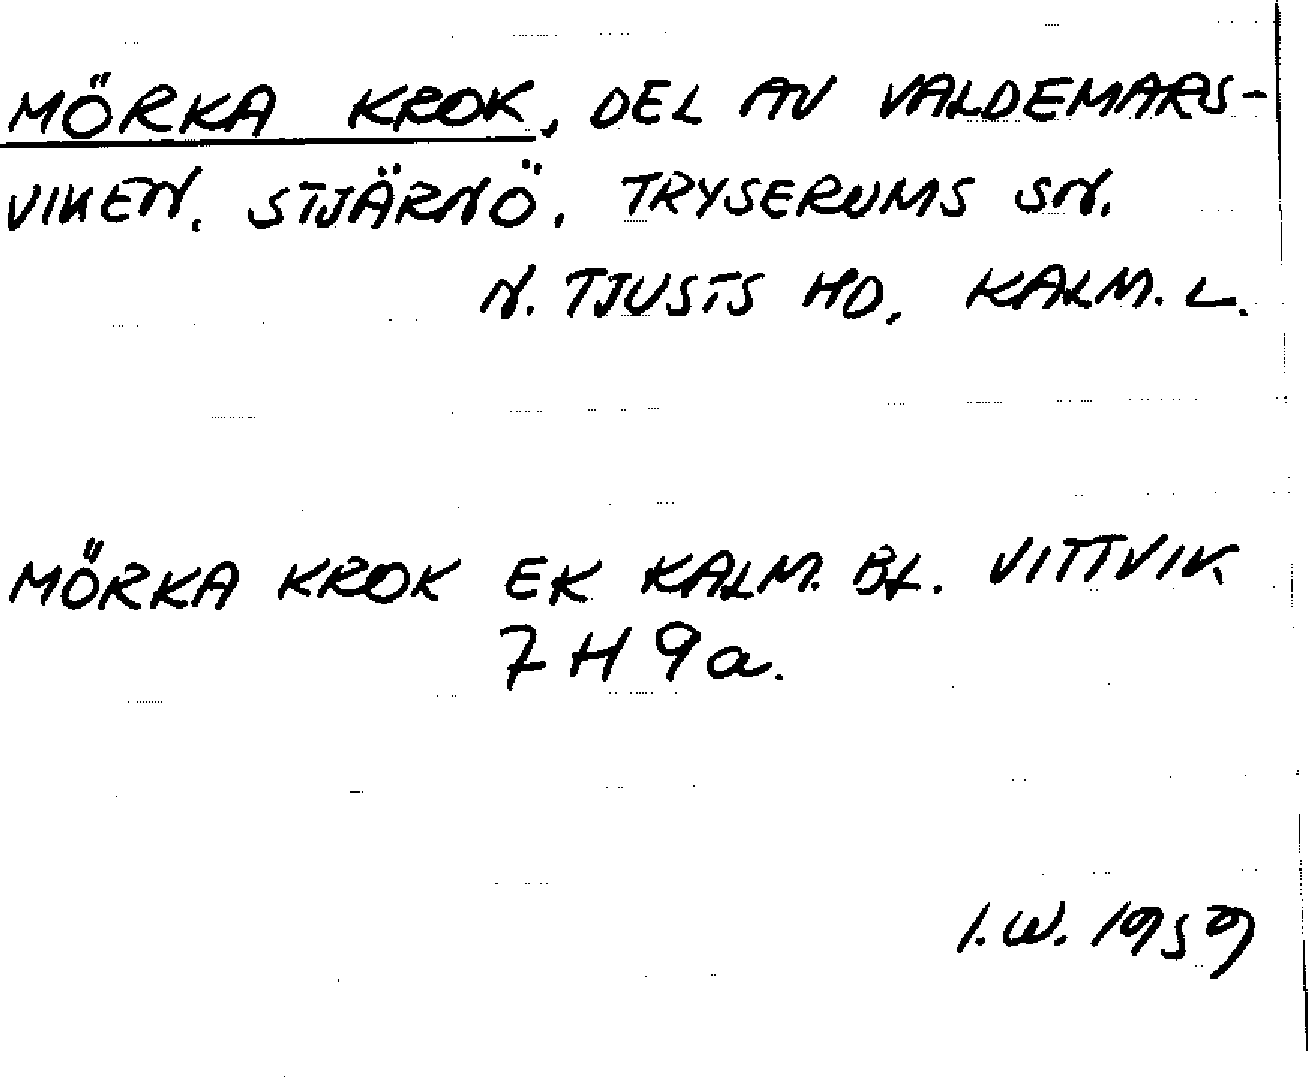 MÖRKA KROK, DEL AV VALDEMARS-
VIKEN. STJÄRNÖ. TRYSERUMS SN.
N. TJUSTS HD, KALM. L.
MÖRKA KROK EK KALM. BL. VITTVIK
7 H 9 a.
I.W. 1959